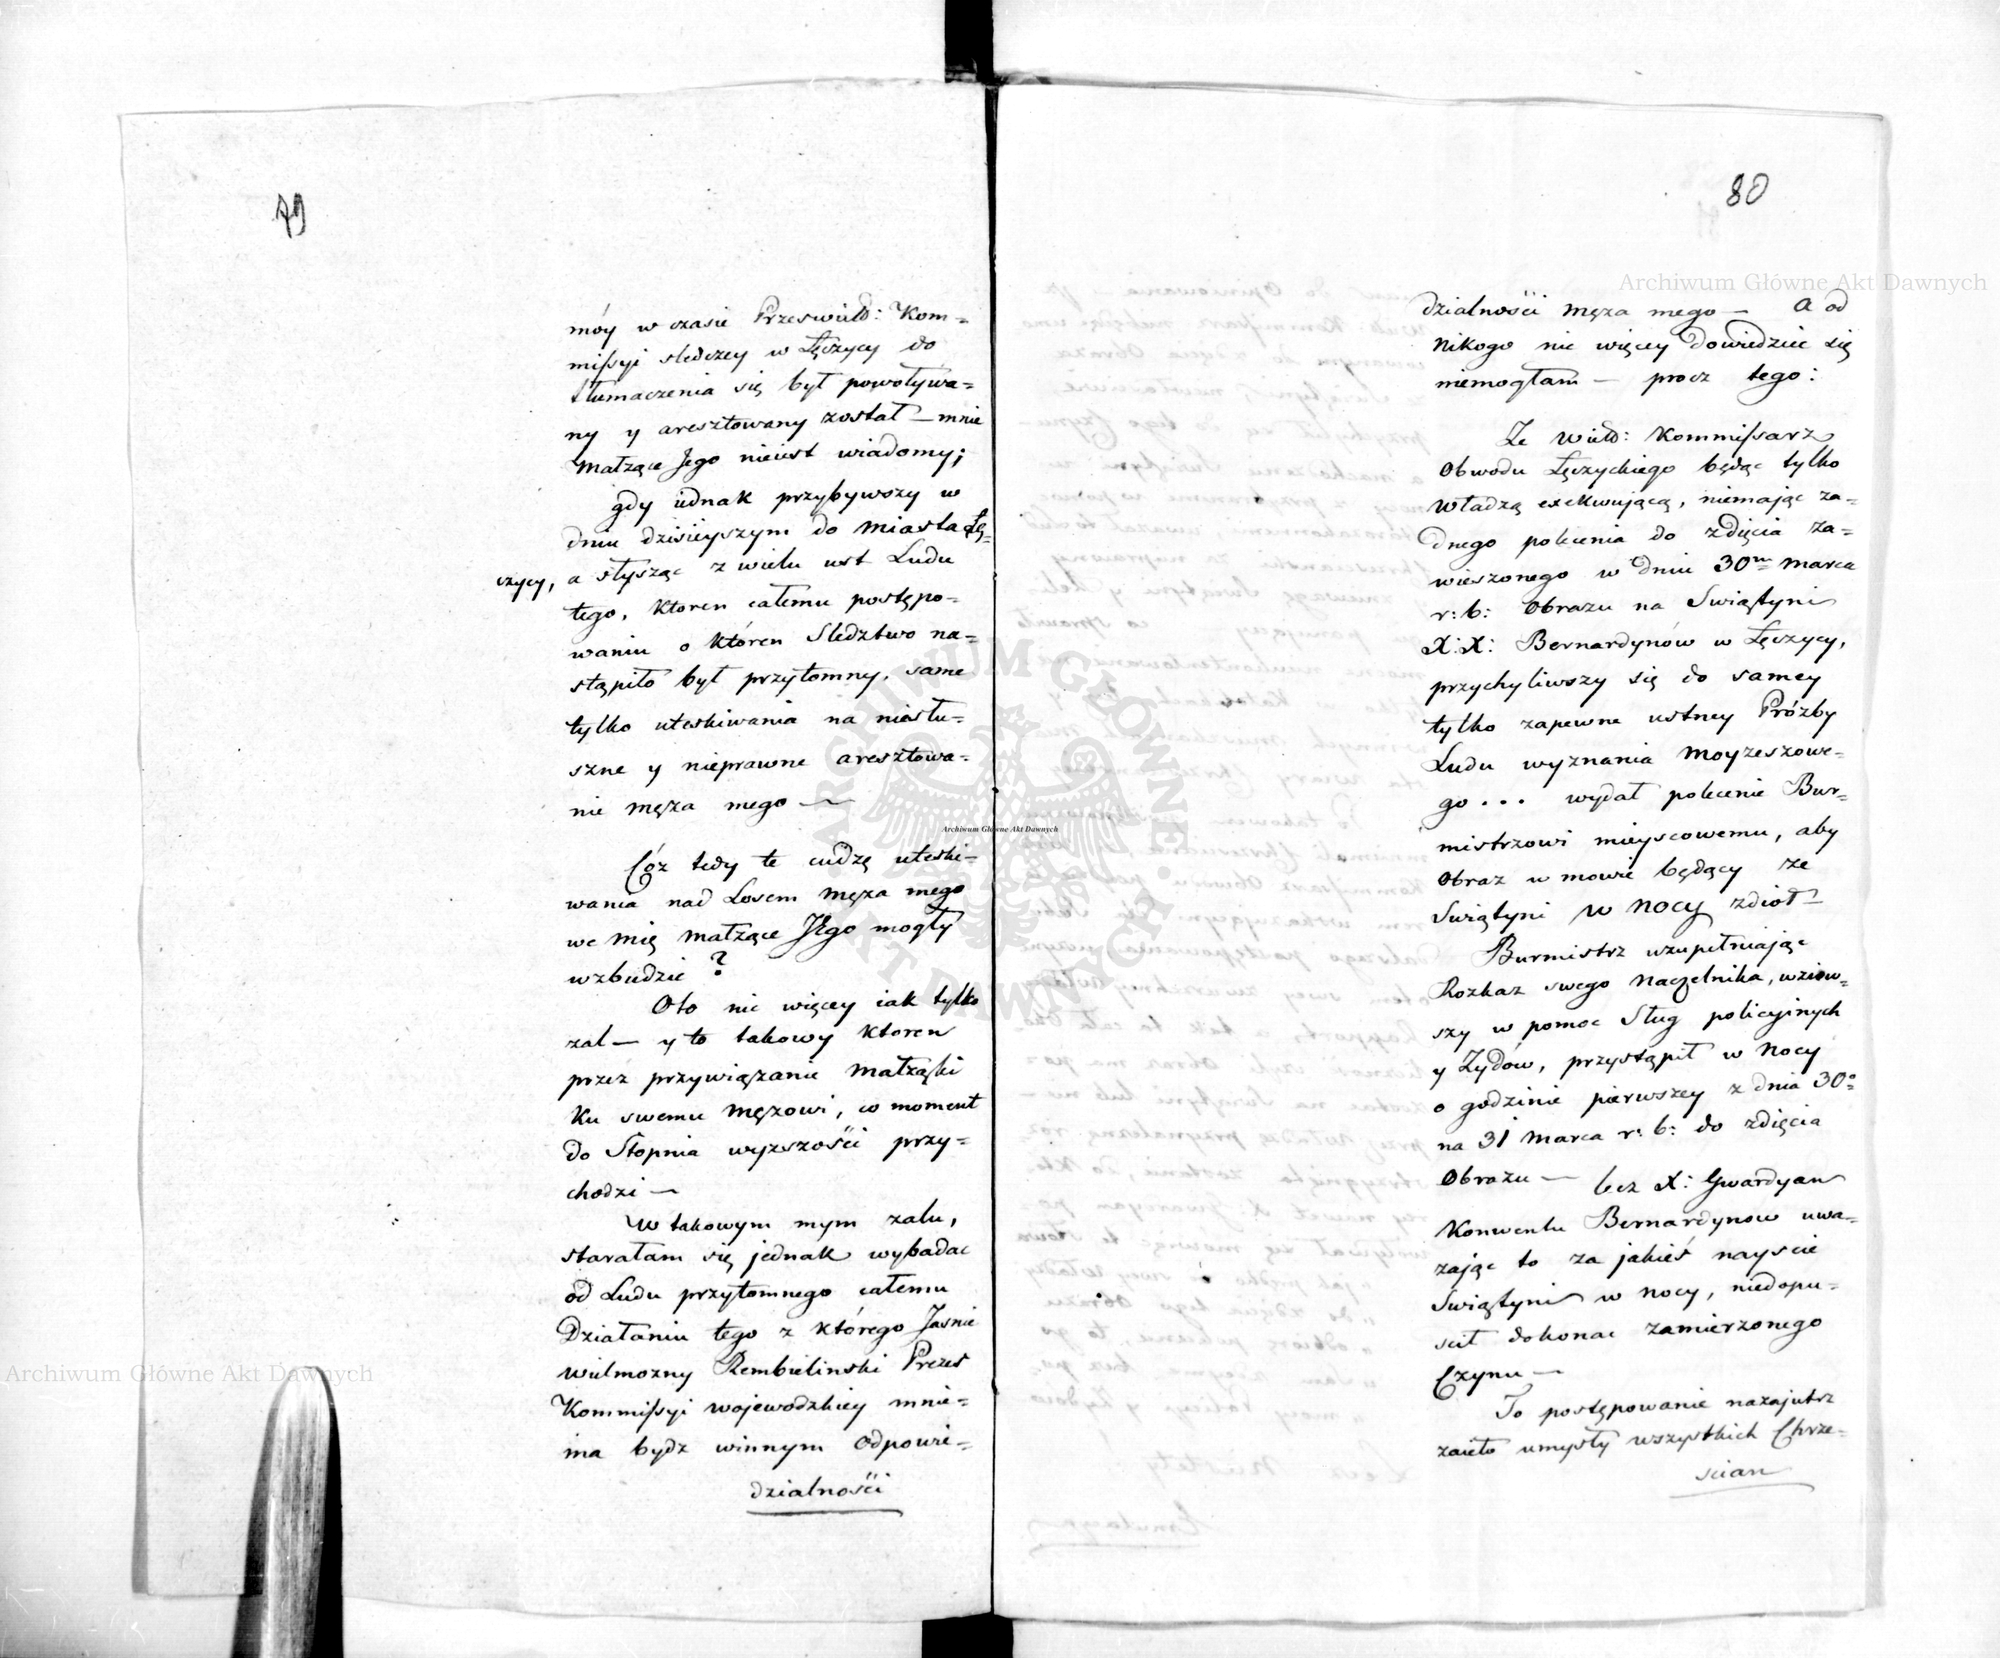 79
móy w czasie Przeswietd: Kom-
missyi sledczey w Łęczycy do
tłumaczenia się był powoływa-
ny y aresztowany został — mnie
Małżące Jego nieiest wiadomy;
gdy iednak przybywszy w
dniu dzisieyszym do Miasta Łę-
czycy, a słysząc z wielu ust Ludu
tego, ktoren całemu postępo-
waniu o któren Sledztwo na-
stąpiło był przytomny, same
tylko uteskiwania na niesłu-
szne y nieprawne aresztowa-
nie męża mego —
Cóz tedy te cudzę uteski-
wania nad Losem Męza mego
we mię Małżące Jego mogły
wzbudzie ?
Oto nic więcey iak tylko
zal — y to takowy ktoren
przez przywiązanie Małżąski
Ku swemu Mężowi, co moment
do Stopnia wyzszości przy-
chodzi —
W takowym mym zalu,
starałam się jednak wybadac
od Ludu przytomnego całemu
Działaniu tego z którego Jasnie
wielmozny Rembielinski Prezes
Kommissyi wojewodzkiey mnie-
ma bydz winnym Odpowie-
dzialności
80
dzialności męza mego — A od
Nikogo nic więcey dowiedziec się
niemogłam — procz tego:
Ze Wield: Kommissarz
Obwodu Łęczyckiego będąc tylko
Władzą exekwuiącą, niemając za-
dnego polecenia do zdięcia za-
wieszonego w dniu 30m Marca
r: b: Obrazu na Swiątyni
X: X: Bernardynów w Łęczycy,
przychyliwszy się do samey
tylko zapewne ustney Prózby
Ludu wyznania Moyzeszowe-
go . . . wydał polecenie Bur-
mistrzowi mieyscowemu, aby
Obraz w mowie będący ze
Swiątyni w nocy zdioł —
Burmistrz uzupełniając
Rozkaz swego Naczelnika, wziow-
szy w pomoc Sług policyjnych
y Zydów, przystąpił w Nocy
o godzinie pierwszey z dnia 30o
na 31 Marca r: b: do zdięcia
Obrazu — lecz X: Gwardyan
Konwentu Bernardynow uwa-
zając to za jakieś nayscie
Swiątyni w nocy, niedopu-
scił dokonac zamierzonego
Czynu —
To postępowanie nazajutrz
zaieło umysły wszystkich Chrze-
scian
Archiwum Główne Akt Dawnych
Archiwum Główne Akt Dawnych
Archiwum Główne Akt Dawnych
ARCHIWUM GŁÓWNE AKT DAWNYCH